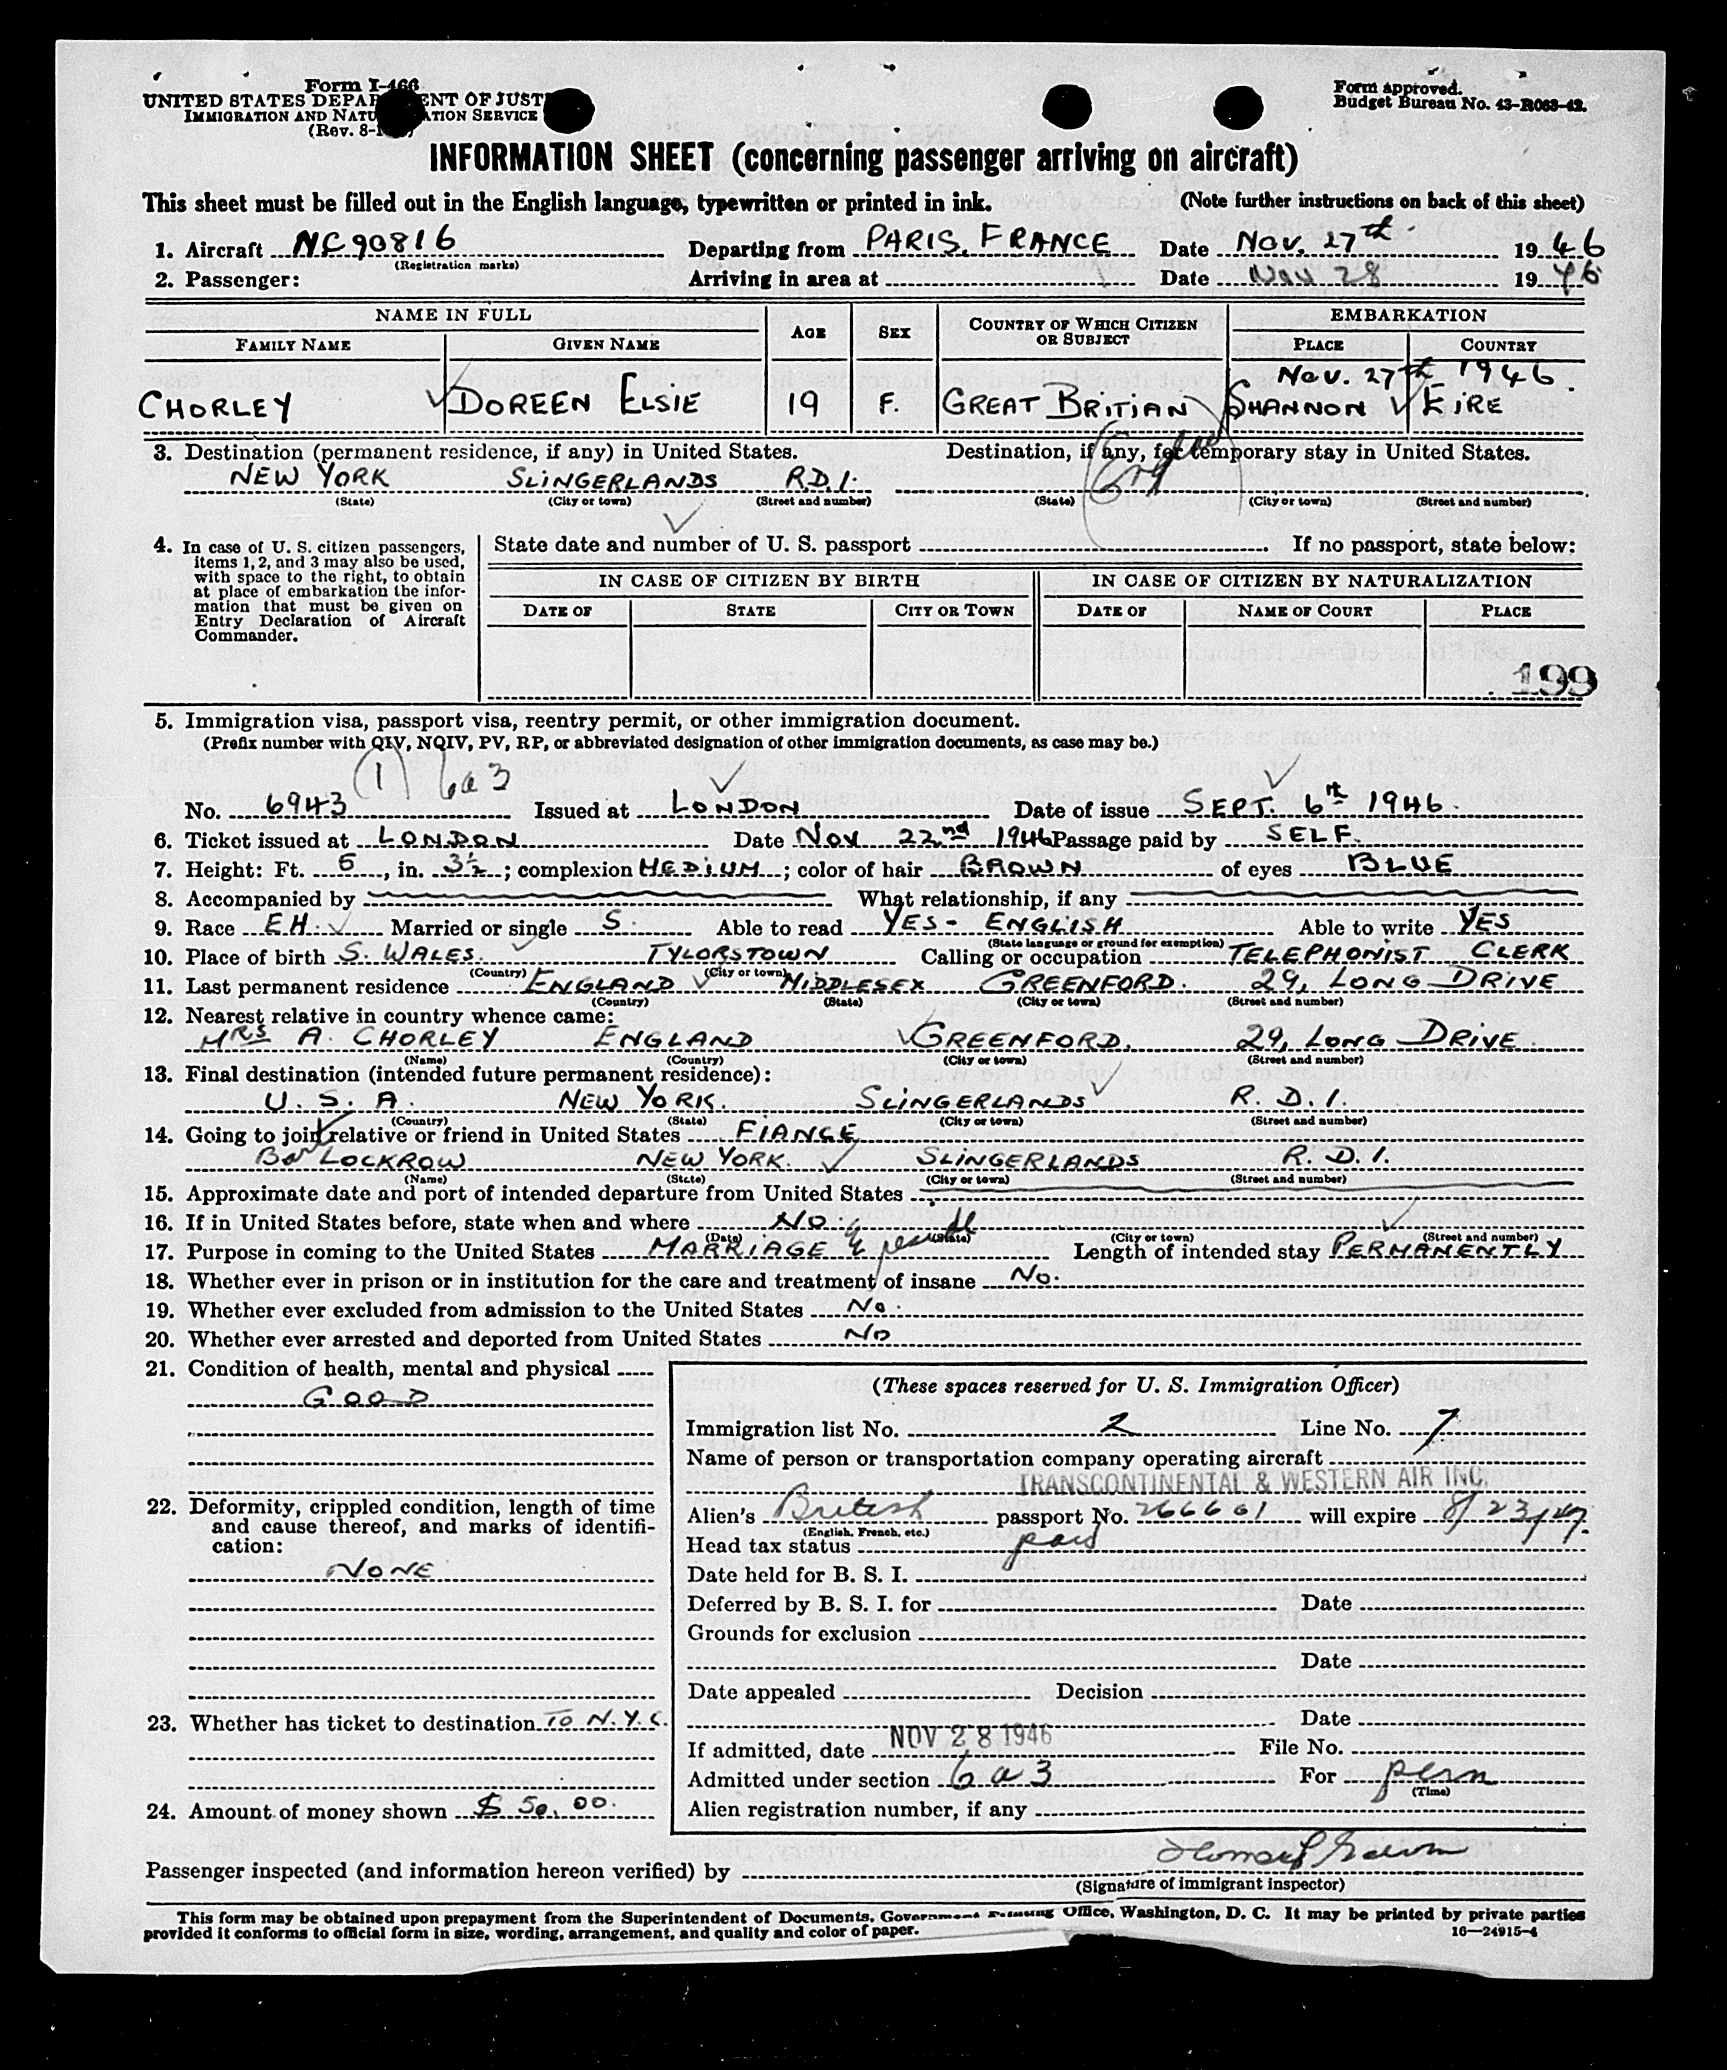 Form I-466
UNITED STATES DEPARTMENT OF JUSTICE
IMMIGRATION AND NATURALIZATION SERVICE
(Rev. 8-1
Form approved.
Budget Bureau No. 43-R063-42.
INFORMATION SHEET (concerning passenger arriving on aircraft)
This sheet must be filled out in the English language, typewritten or printed in ink. (Note further instructions on back of this sheet)
1. Aircraft NC90816 Departing from PARIS, FRANCE Date Nov. 27th 1946
(Registration marks)
2. Passenger: Arriving in area at Date Nov 28 1946
NAME IN FULL AGE SEX COUNTRY OF WHICH CITIZEN OR SUBJECT EMBARKATION
FAMILY NAME GIVEN NAME PLACE COUNTRY
Nov. 27th 1946.
CHORLEY DOREEN ELSIE 19 F. GREAT BRITIAN SHANNON EIRE
3. Destination (permanent residence, if any) in United States. Destination, if any, for temporary stay in United States.
NEW YORK SLINGERLANDS R.D.1.
(State) (City or town) (Street and number) (State) (City or town) (Street and number)
4. In case of U. S. citizen passengers, items 1, 2, and 3 may also be used, with space to the right, to obtain at place of embarkation the information that must be given on Entry Declaration of Aircraft Commander.
State date and number of U. S. passport . If no passport, state below:
IN CASE OF CITIZEN BY BIRTH IN CASE OF CITIZEN BY NATURALIZATION
DATE OF STATE CITY OR TOWN DATE OF NAME OF COURT PLACE
199
5. Immigration visa, passport visa, reentry permit, or other immigration document.
(Prefix number with QIV, NQIV, PV, RP, or abbreviated designation of other immigration documents, as case may be.)
(1) 6a3
No. 6943 Issued at LONDON Date of issue SEPT. 6th 1946.
6. Ticket issued at LONDON Date NOV 22nd 1946 Passage paid by SELF.
7. Height: Ft. 5, in. 3½; complexion MEDIUM; color of hair BROWN of eyes BLUE
8. Accompanied by What relationship, if any
9. Race EH. Married or single S. Able to read YES - ENGLISH Able to write YES
(State language or ground for exemption)
10. Place of birth S. WALES. TYLORSTOWN Calling or occupation TELEPHONIST CLERK
(Country) (City or town)
11. Last permanent residence ENGLAND MIDDLESEX GREENFORD. 29, LONG DRIVE
(Country) (State) (City or town) (Street and number)
12. Nearest relative in country whence came:
MRS A. CHORLEY ENGLAND GREENFORD. 29, LONG DRIVE.
(Name) (Country) (City or town) (Street and number)
13. Final destination (intended future permanent residence):
U. S. A. NEW YORK. SLINGERLANDS R. D. 1.
(Country) (State) (City or town) (Street and number)
14. Going to join relative or friend in United States FIANCE
LOCKROW NEW YORK. SLINGERLANDS R. D. 1.
(Name) (State) (City or town) (Street and number)
15. Approximate date and port of intended departure from United States
16. If in United States before, state when and where No.
(Date) (State) (City or town) (Street and number)
17. Purpose in coming to the United States MARRIAGE & reside Length of intended stay PERMANENTLY
18. Whether ever in prison or in institution for the care and treatment of insane No.
19. Whether ever excluded from admission to the United States No.
20. Whether ever arrested and deported from United States No
21. Condition of health, mental and physical
GOOD
22. Deformity, crippled condition, length of time and cause thereof, and marks of identification:
NONE
23. Whether has ticket to destination TO N.Y.C.
24. Amount of money shown $ 50.00.
(These spaces reserved for U. S. Immigration Officer)
Immigration list No. 2 Line No. 7
Name of person or transportation company operating aircraft
TRANSCONTINENTAL & WESTERN AIR INC.
Alien's British passport No. 266601 will expire 8/23/47.
(English, French, etc.)
Head tax status paid
Date held for B. S. I.
Deferred by B. S. I. for Date
Grounds for exclusion
Date
Date appealed Decision
Date
If admitted, date NOV 28 1946 File No.
Admitted under section 6a3 For perm
(Time)
Alien registration number, if any
Passenger inspected (and information hereon verified) by
(Signature of immigrant inspector)
This form may be obtained upon prepayment from the Superintendent of Documents, Government Printing Office, Washington, D. C. It may be printed by private parties
provided it conforms to official form in size, wording, arrangement, and quality and color of paper. 16—24915-4